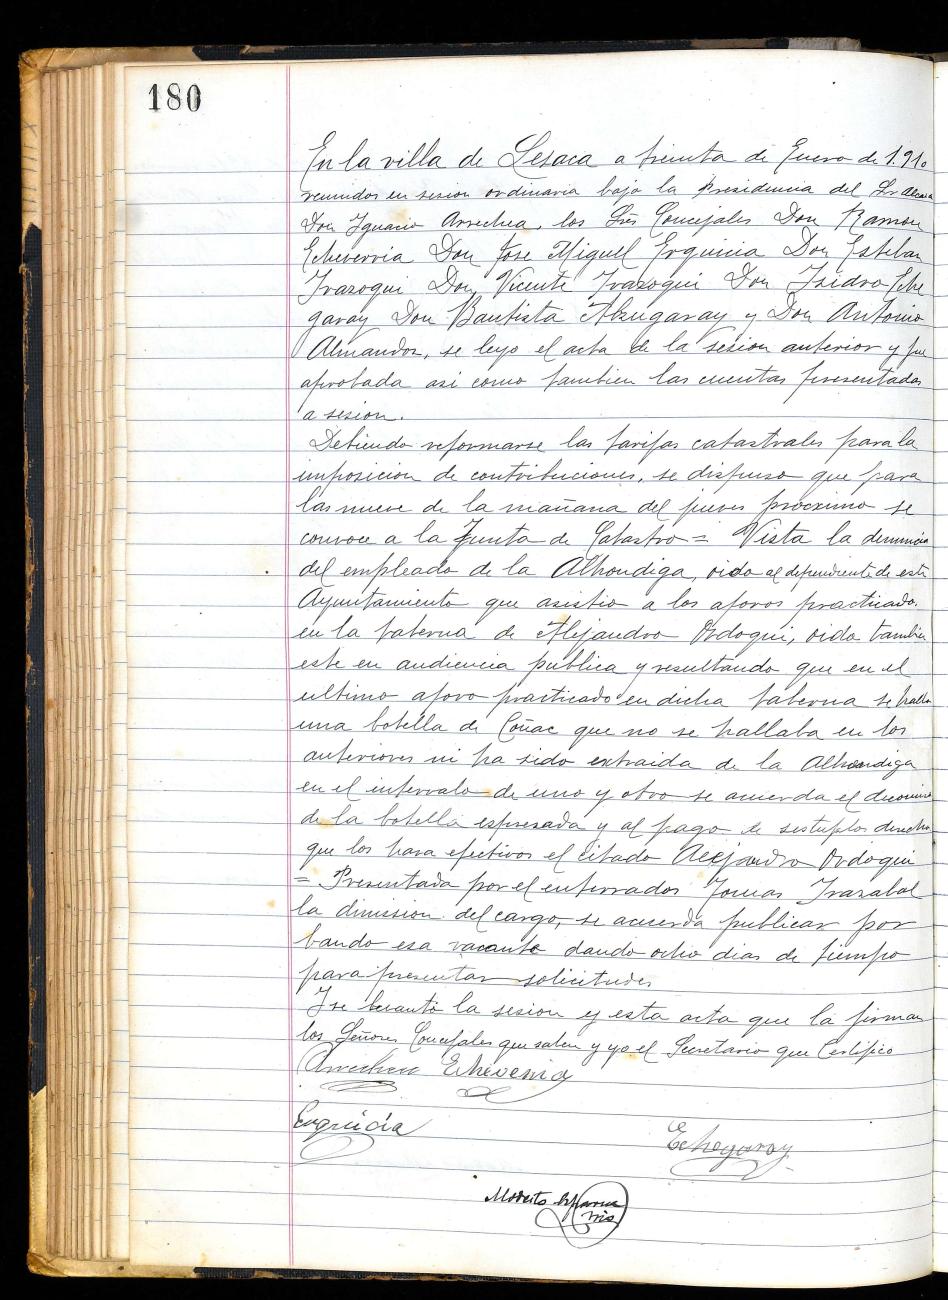 180
En la villa de Lesaca a treinta de Enero de 1.910
reunidos en sesion ordinaria bajo la presidencia del Sr Alcalde
Don Ygnacio Arrechea, los Sres Concejales Don Ramon
Echeverria Don Jose Miguel Erquicia Don Esteban
Irazoqui Don Vicente Irazoqui Don Isidro Eche
garay Don Bautista Alzugaray y Don Antonio
Almandoz, se leyo el acta de la sesion anterior y fue
aprobada asi como tambien las cuentas presentadas
a sesion.
Debiendo reformarse las tarifas catastrales para la
imposicion de contribuciones, se dispuso que para
las nueve de la mañana del jueves procximo se
convoce a la Junta de Catastro = Vista la denuncia
del empleado de la Alhondiga, oido al dependiente de este
Ayuntamiento que asistio a los aforos practicado.
en la taberna de Alejandro Ordoqui, oido tambien
este en audiencia publica y resultando que en el
ultimo aforo practicado en dicha taberna se hallo
una botella de Coñac que no se hallaba en los
anteriores ni ha sido extraida de la Alhondiga
en el intervalo de uno y otro se acuerda el decomiso
de la botella espresada y al pago de sestuplos derechos
que los hara efectivos el citado Alejandro Ordoqui
= Presentada por el enterrados Tomas Irazabal
la dimision del cargo, se acuerda publicar por
bando esa vacante dando ocho dias de tiempo
para presentar solicitudes
Y se levantó la sesion y esta acta que la firman
los Señores Concejales que saben y yo el Secretario que Certifico
Arrechea Echeverria
Erquicia
Echegaray
Modesto